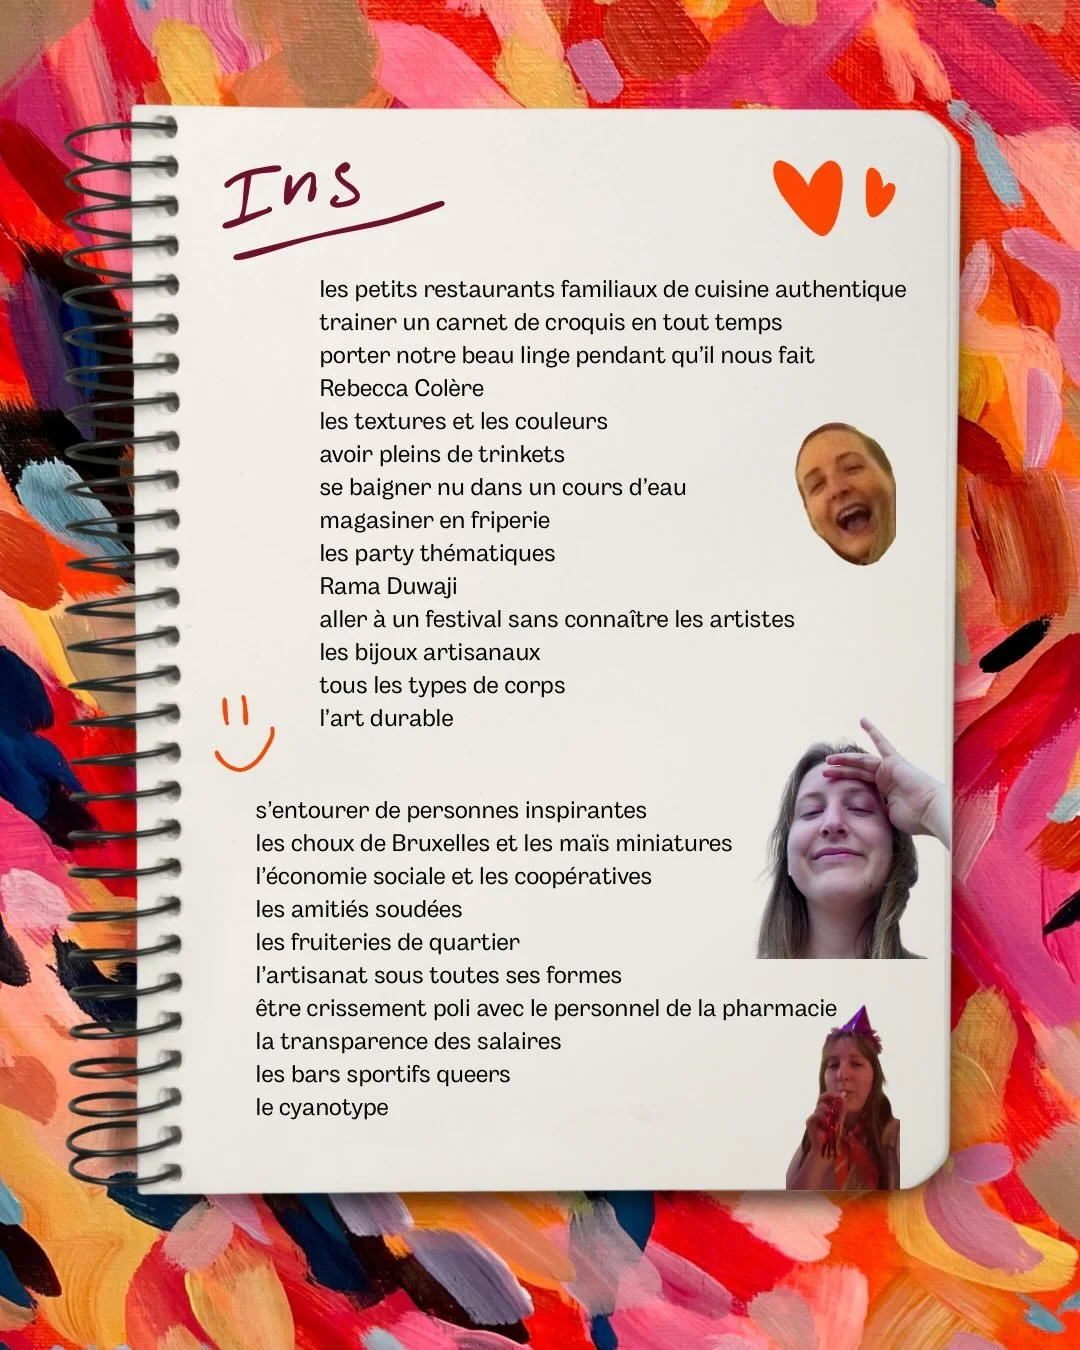 Ins
les petits restaurants familiaux de cuisine authentique
trainer un carnet de croquis en tout temps
porter notre beau linge pendant qu’il nous fait
Rebecca Colère
les textures et les couleurs
avoir pleins de trinkets
se baigner nu dans un cours d’eau
magasiner en friperie
les party thématiques
Rama Duwaji
aller à un festival sans connaître les artistes
les bijoux artisanaux
tous les types de corps
l’art durable
s’entourer de personnes inspirantes
les choux de Bruxelles et les maïs miniatures
l’économie sociale et les coopératives
les amitiés soudées
les fruiteries de quartier
l’artisanat sous toutes ses formes
être crissement poli avec le personnel de la pharmacie
la transparence des salaires
les bars sportifs queers
le cyanotype